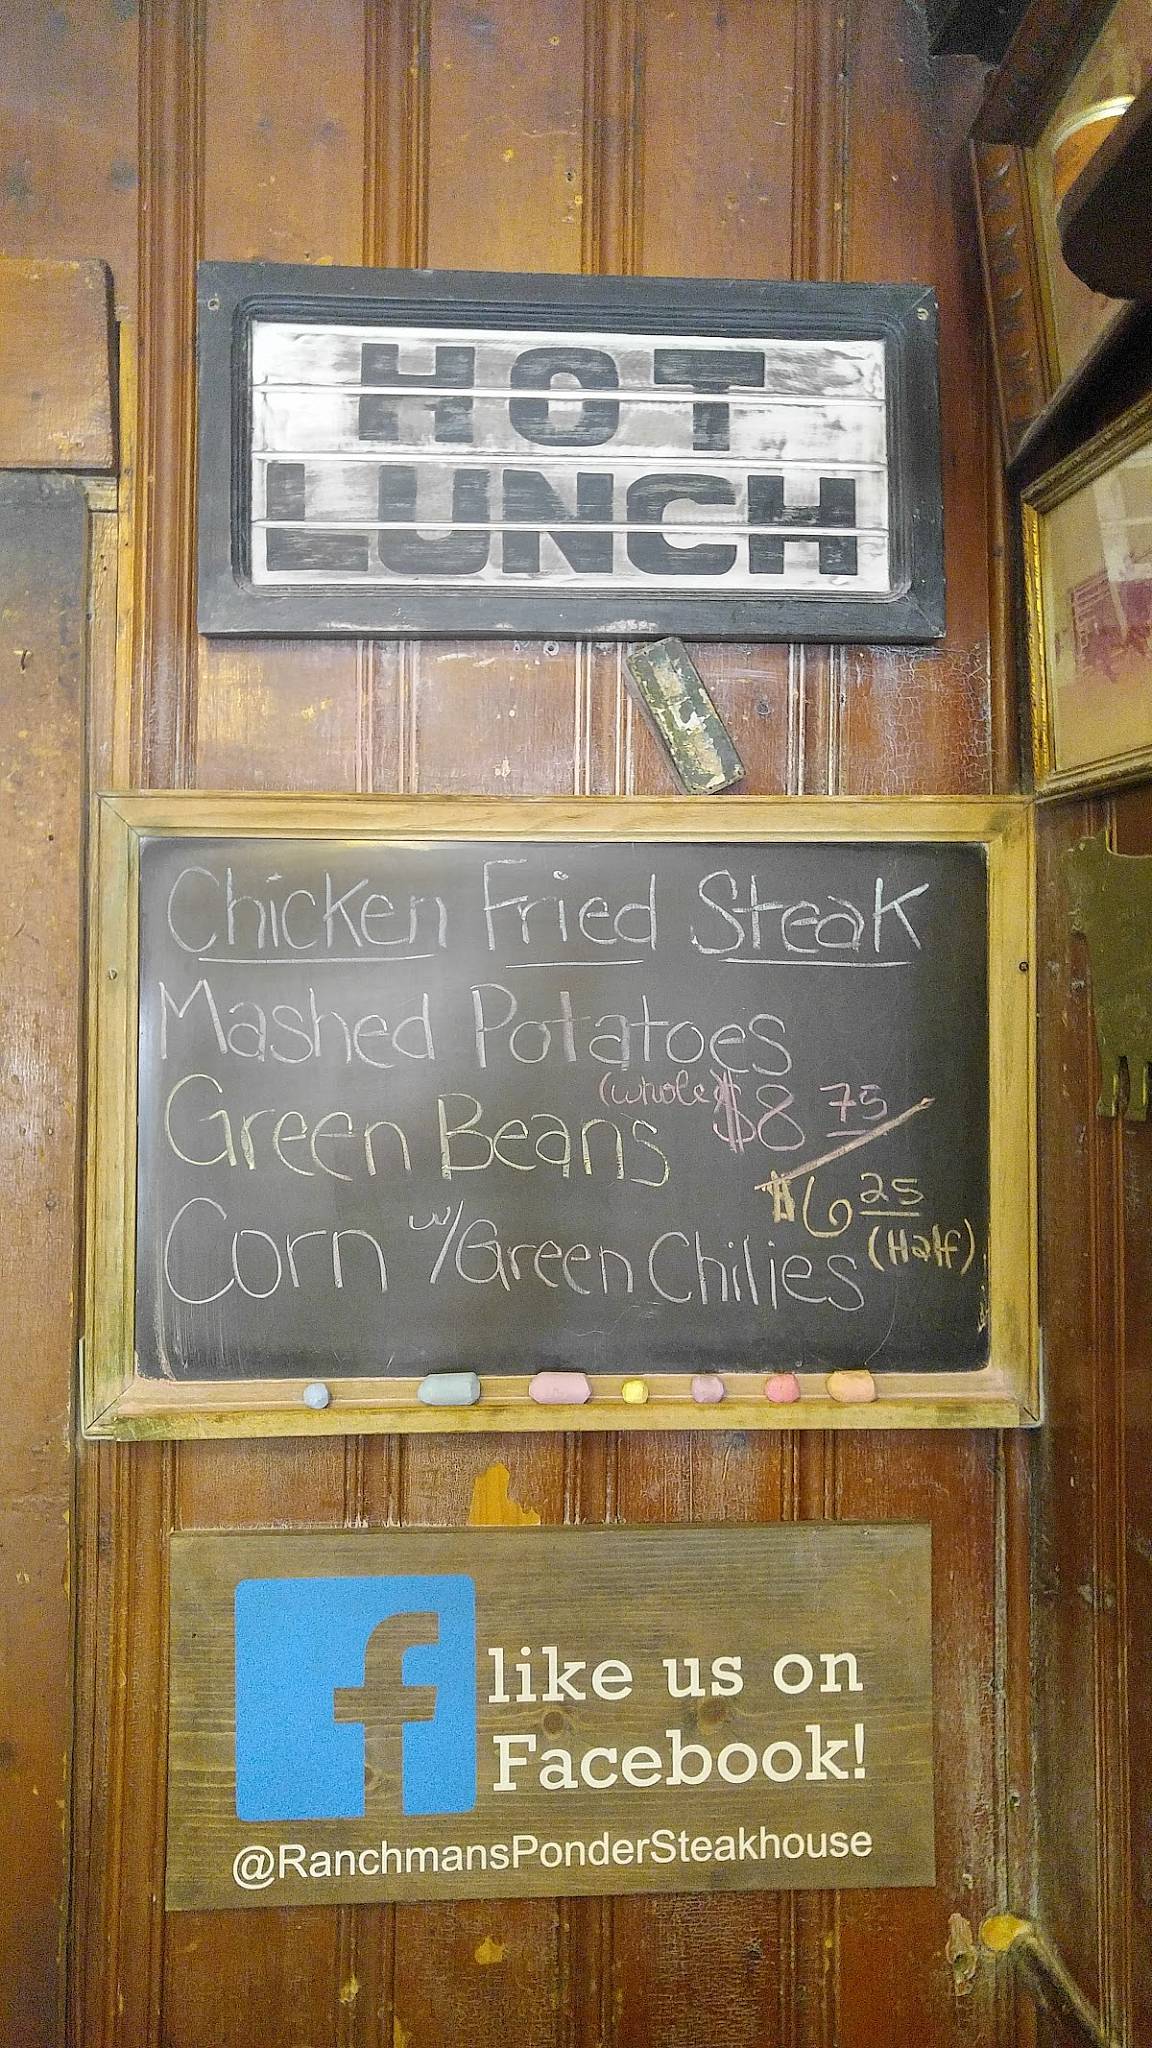 HOT
LUNCH
Chicken Fried Steak
Mashed Potatoes
(whole) $8 75
Green Beans
$6 25
(Half)
Corn w/Green Chilies
like us on
Facebook!
@RanchmansPonderSteakhouse